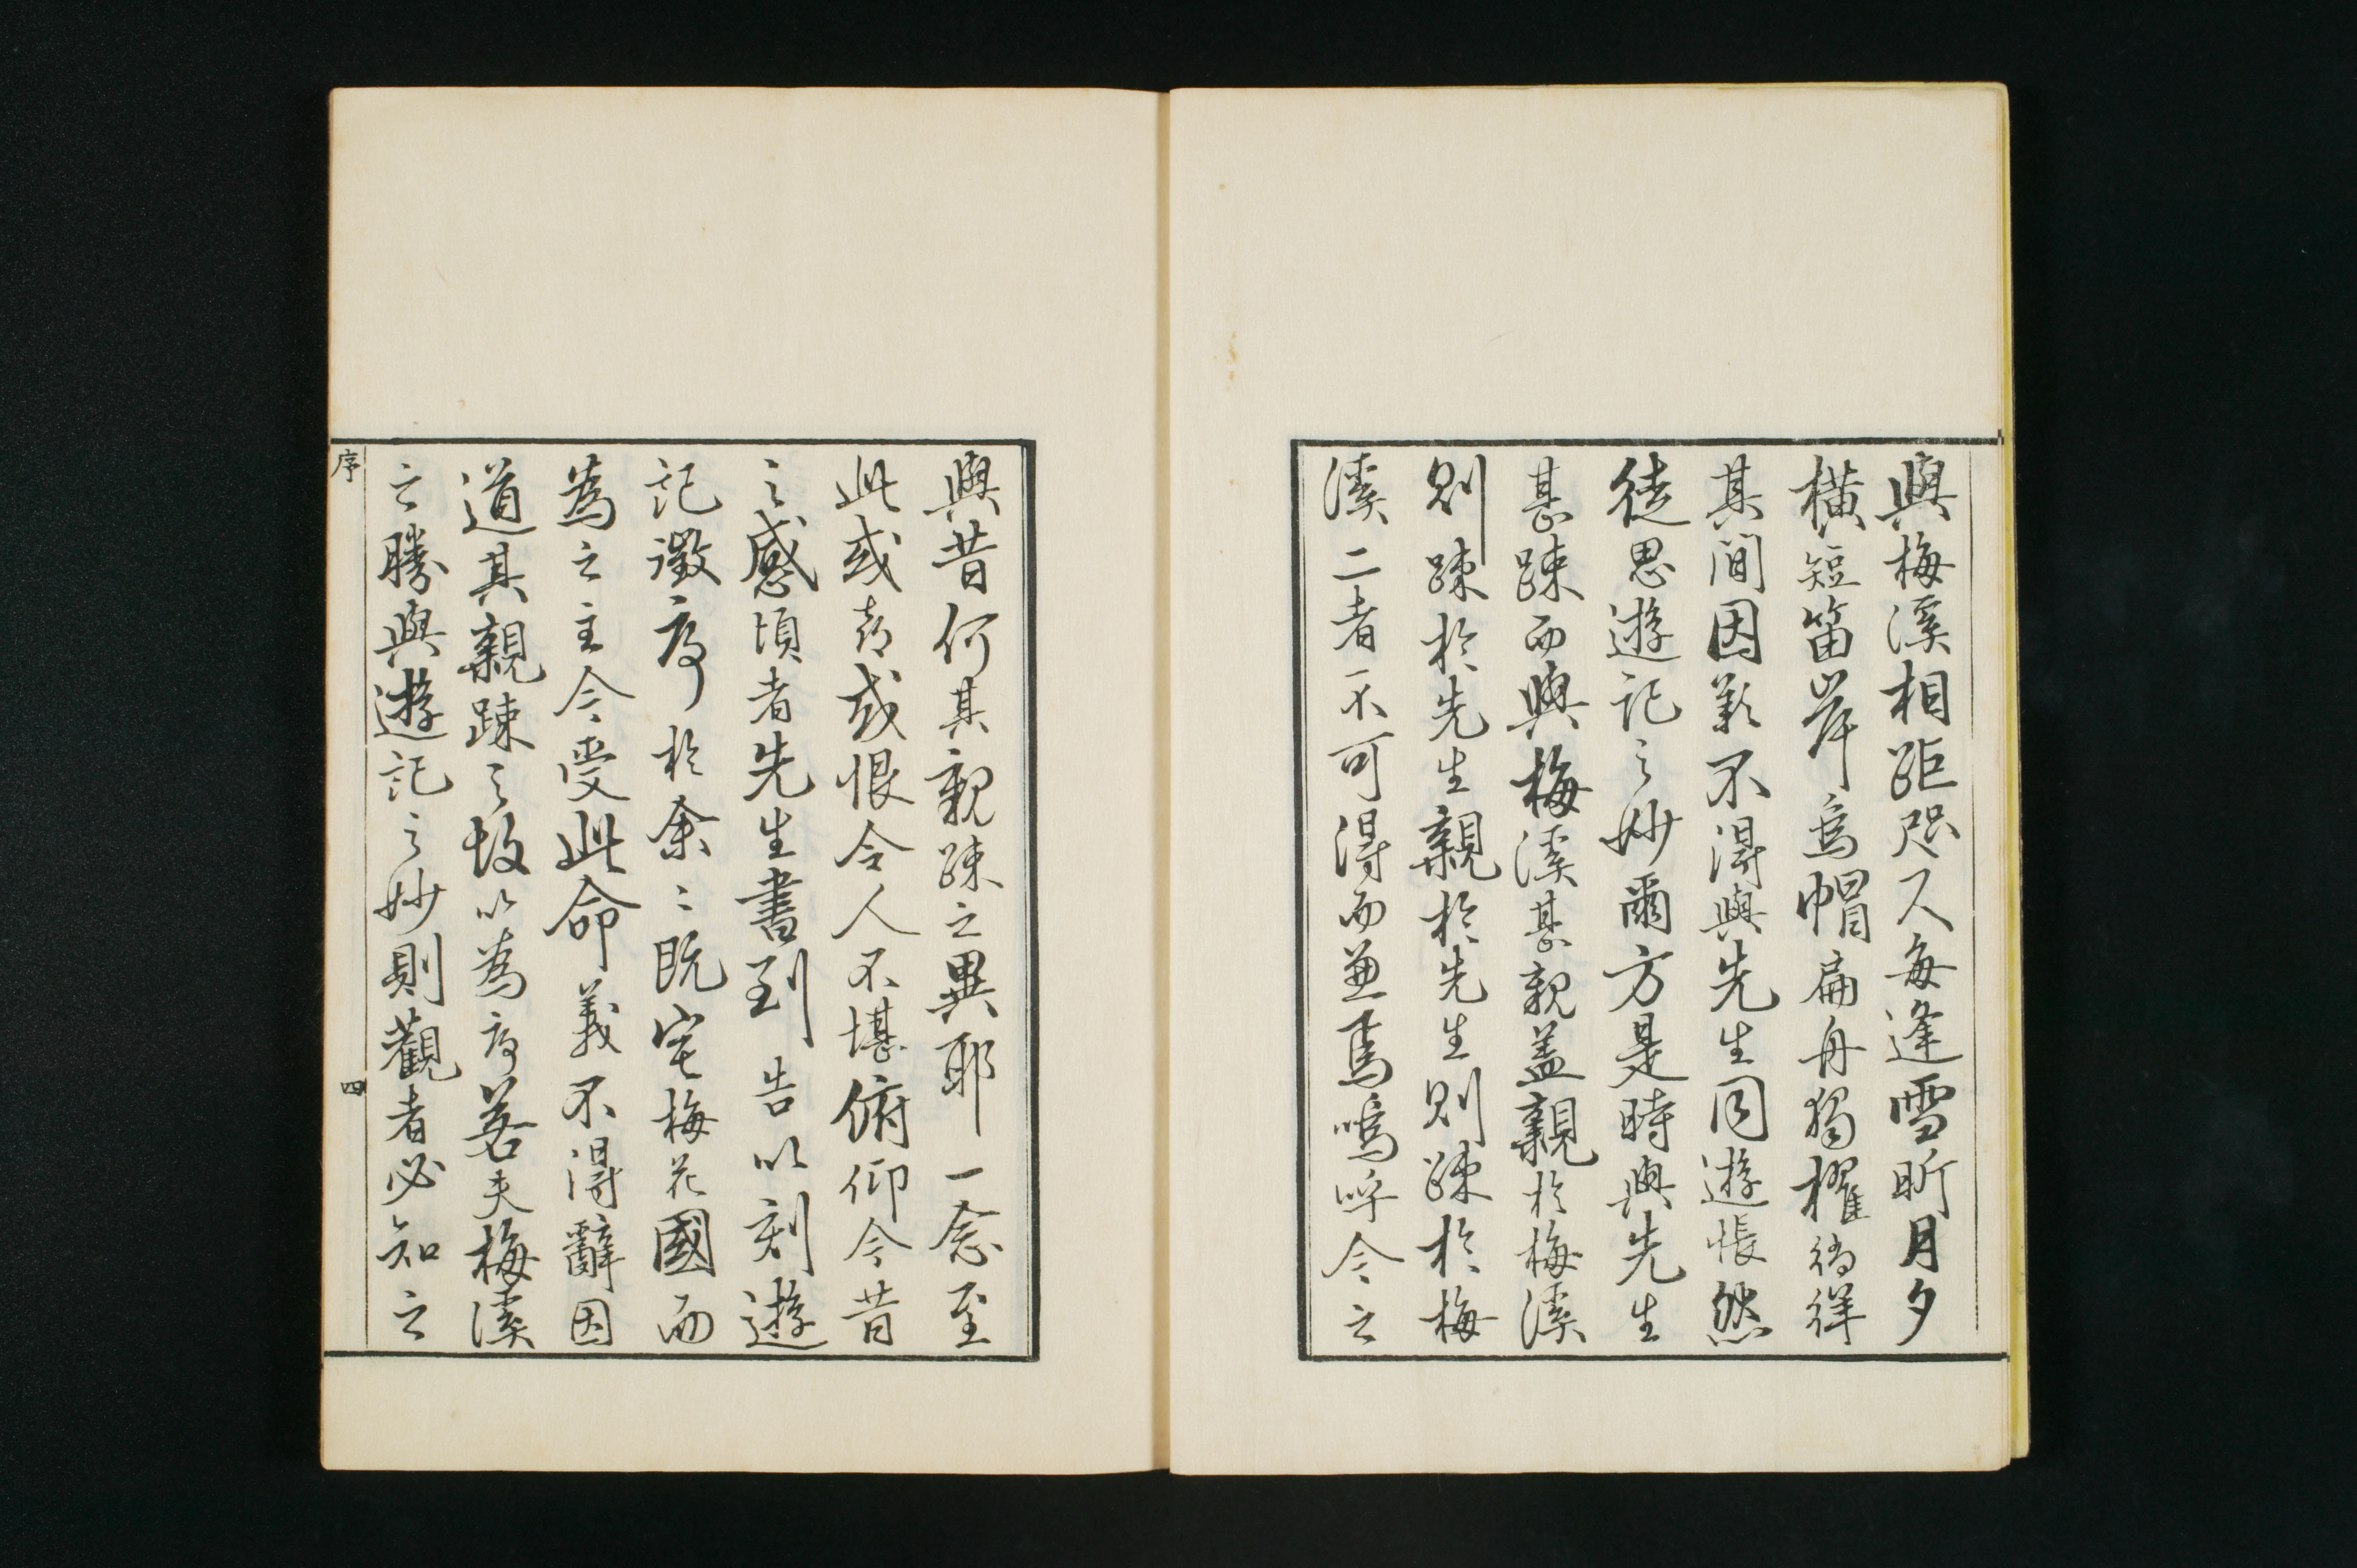 與梅溪相距咫尺每逢雪昕月夕
橫短笛岸烏帽扁舟獨櫂徜徉
其間因歎不得與先生同遊悵然
徒思遊記之妙爾方是時與先生
甚踈而與梅溪甚親蓋親於梅溪
則踈於先生親於先生則踈於梅
溪二者不可得而兼焉嗚呼今之
與昔何其親踈之異耶一念至
此或喜或恨令人不堪俯仰今昔
之感頃者先生書到告以刻遊
記徵序於余〻既宅梅花國而
為之主今受此命義不得辭因
道其親踈之故以為序若夫梅溪
之勝與遊記之妙則觀者必知之
序
四